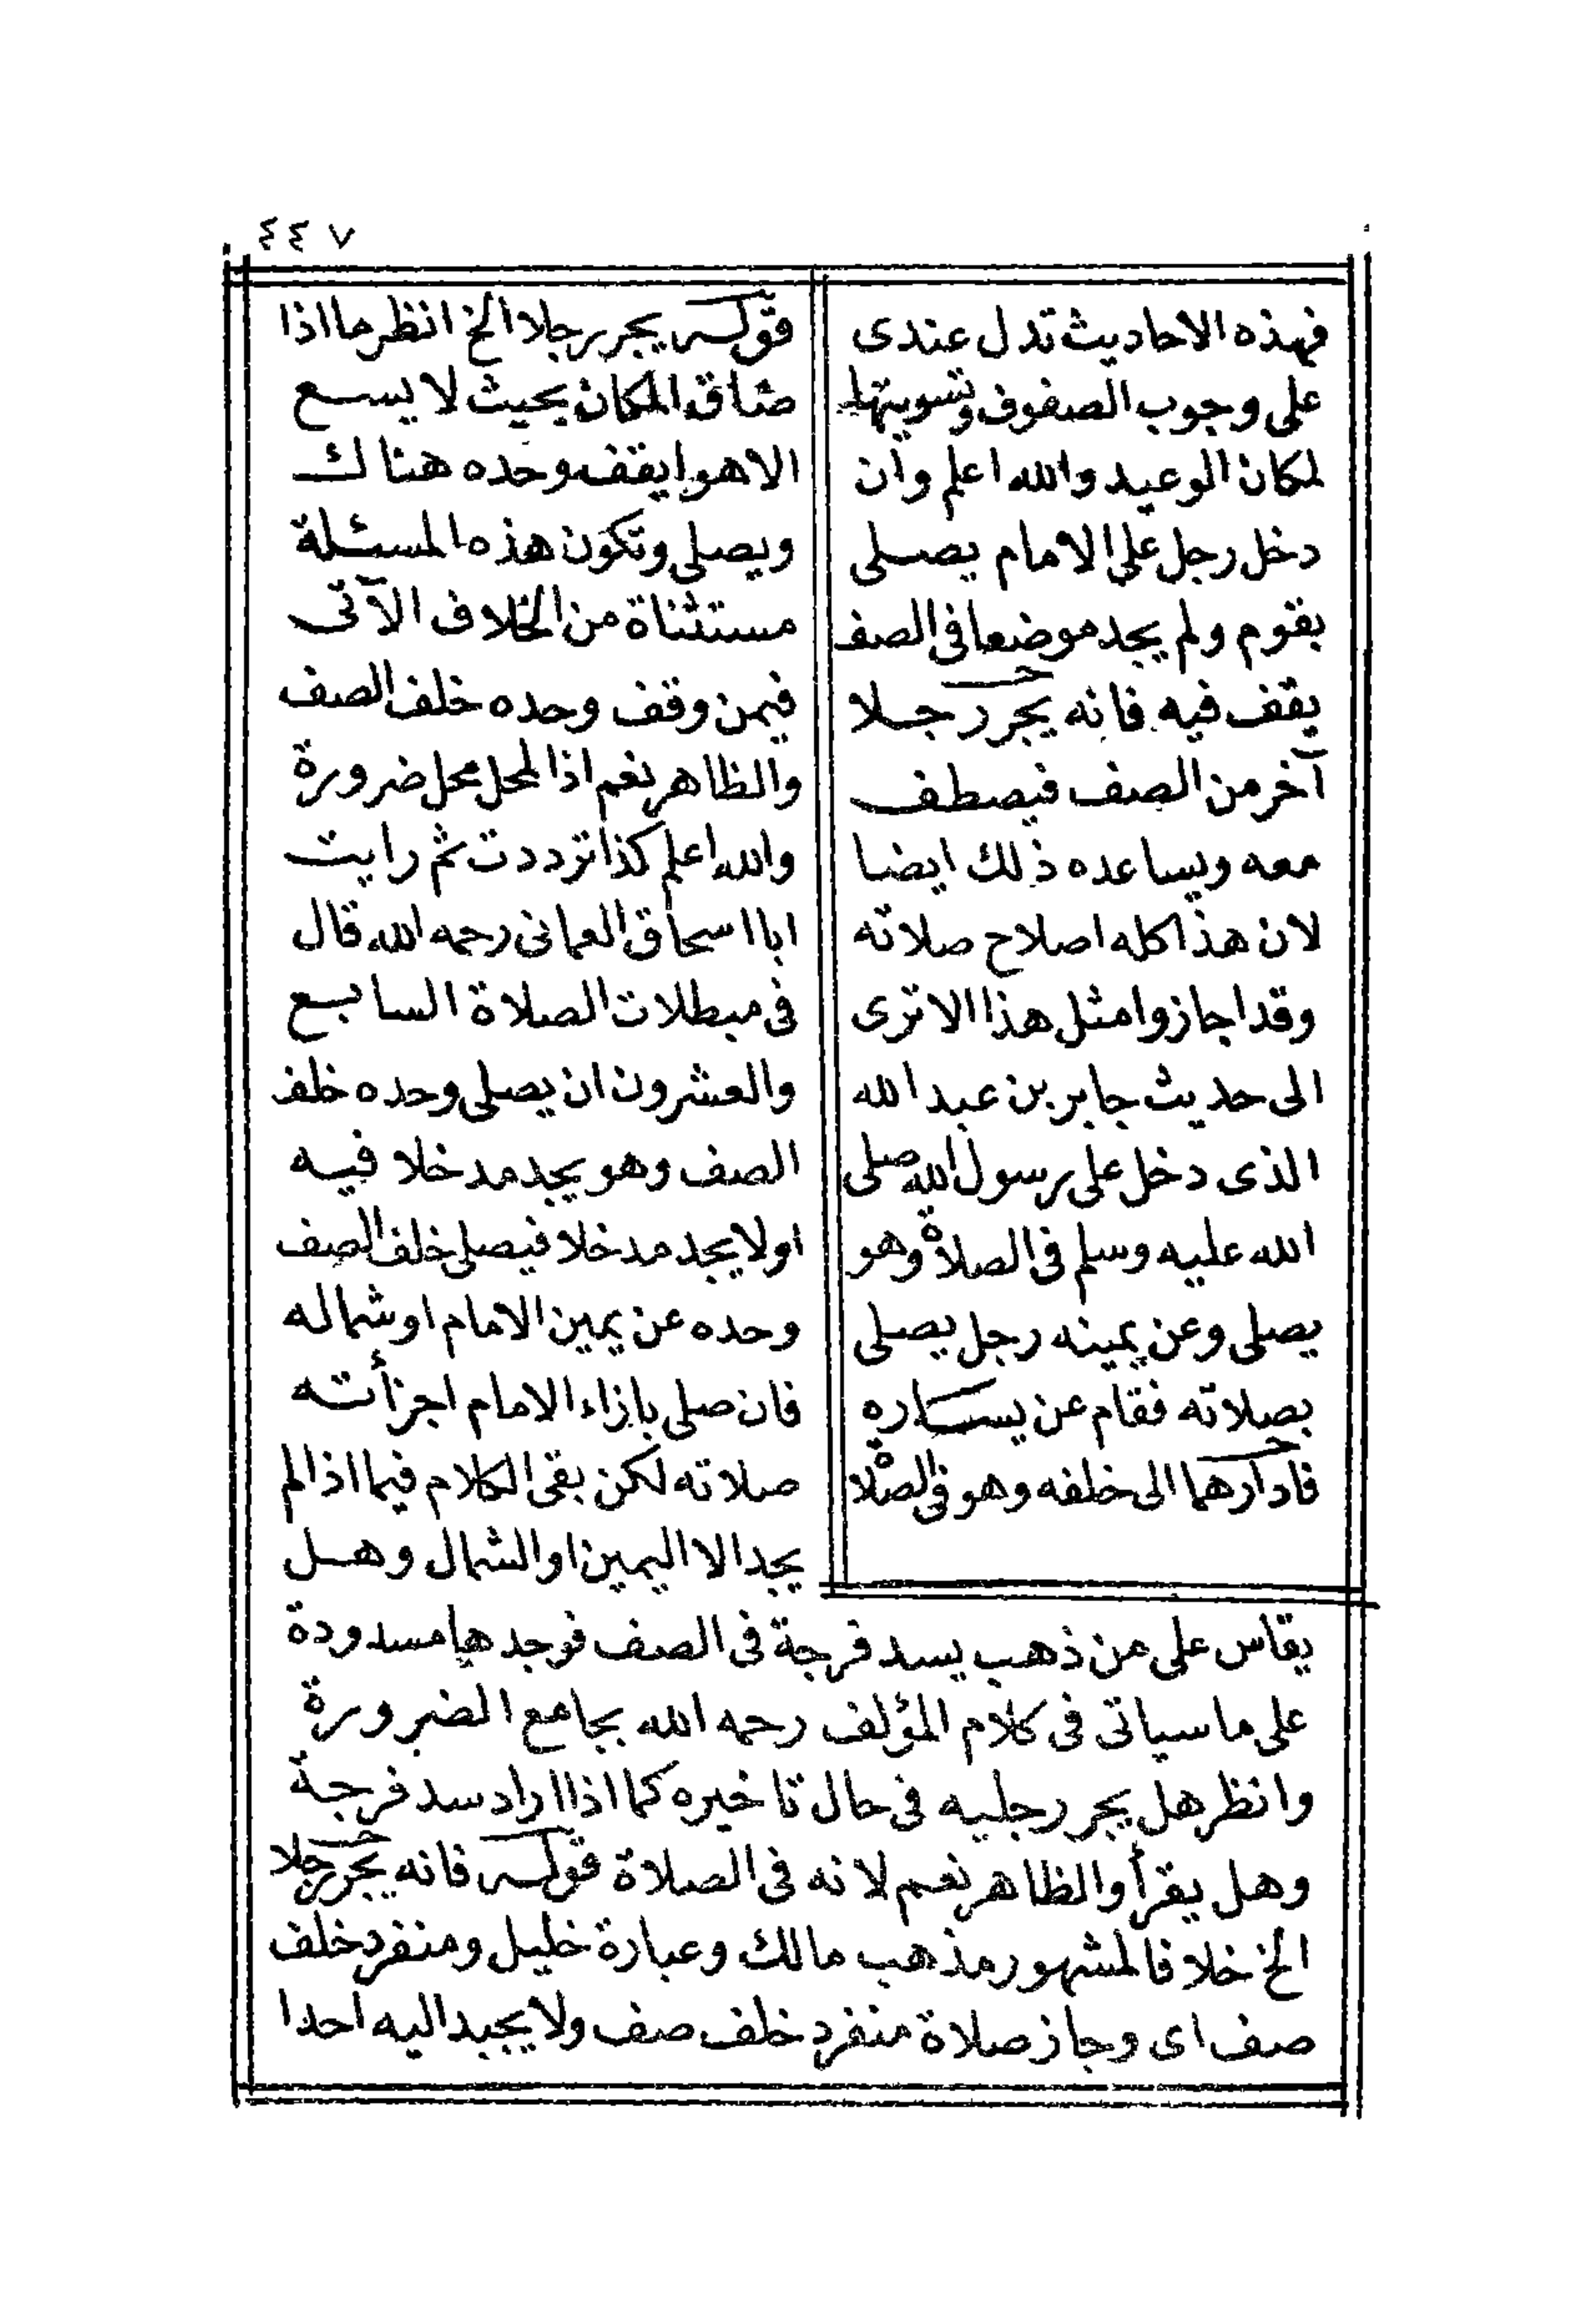 ٤٤٧
فهذه الاحاديث تدل عندى
على وجوب الصفوف وتسويتها
لمكان الوعيد والله اعلم وان
دخل رجل على الامام يصلى
بقوم ولم يجد موضعا فى الصف
يقف فيه فانه يجر رجلا
آخر من الصف فيصطف
معه ويساعده ذلك ايضا
لان هذا كله اصلاح صلاته
وقد اجازوا مثل هذا الا ترى
الى حديث جابر بن عبد الله
الذى دخل على رسول الله صلى
الله عليه وسلم فى الصلاة وهو
يصلى وعن يمينه رجل يصلى
بصلاته فقام عن يساره
فادارهما الى خلفه وهو فى الصلاة
قوله يجر رجلا الخ انظر ما اذا
ضاق المكان بحيث لا يسع
الا هو ايقف وحده هناك
ويصلى وتكون هذه المسئلة
مستثناة من الخلاف الآتى
فيمن وقف وحده خلف الصف
والظاهر نعم اذ المحل محل ضرورة
والله اعلم كذا ترددت ثم رايت
ابا اسحاق العمانى رحمه الله قال
فى مبطلات الصلاة السابع
والعشرون ان يصلى وحده خلف
الصف وهو يجد مدخلا فيه
اولا يجد مدخلا فيصلى خلف الصف
وحده عن يمين الامام او شماله
فان صلى بازاء الامام اجزأته
صلاته لكن بقى الكلام فيما اذا لم
يجد الا اليمين او الشمال وهل
يقاس على من ذهب يسد فرجة فى الصف فوجدها مسدودة
على ما سياتى فى كلام المؤلف رحمه الله بجامع الضرورة
وانظر هل يجر رجليه فى حال تاخيره كما اذا اراد سد فرجة
وهل يقرأ والظاهر نعم لانه فى الصلاة قوله فانه يجر رجلا
الخ خلافا لمشهور مذهب مالك وعبارة خليل ومنفرد خلف
صف اى وجاز صلاة منفرد خلف صف ولا يجبد اليه احدا